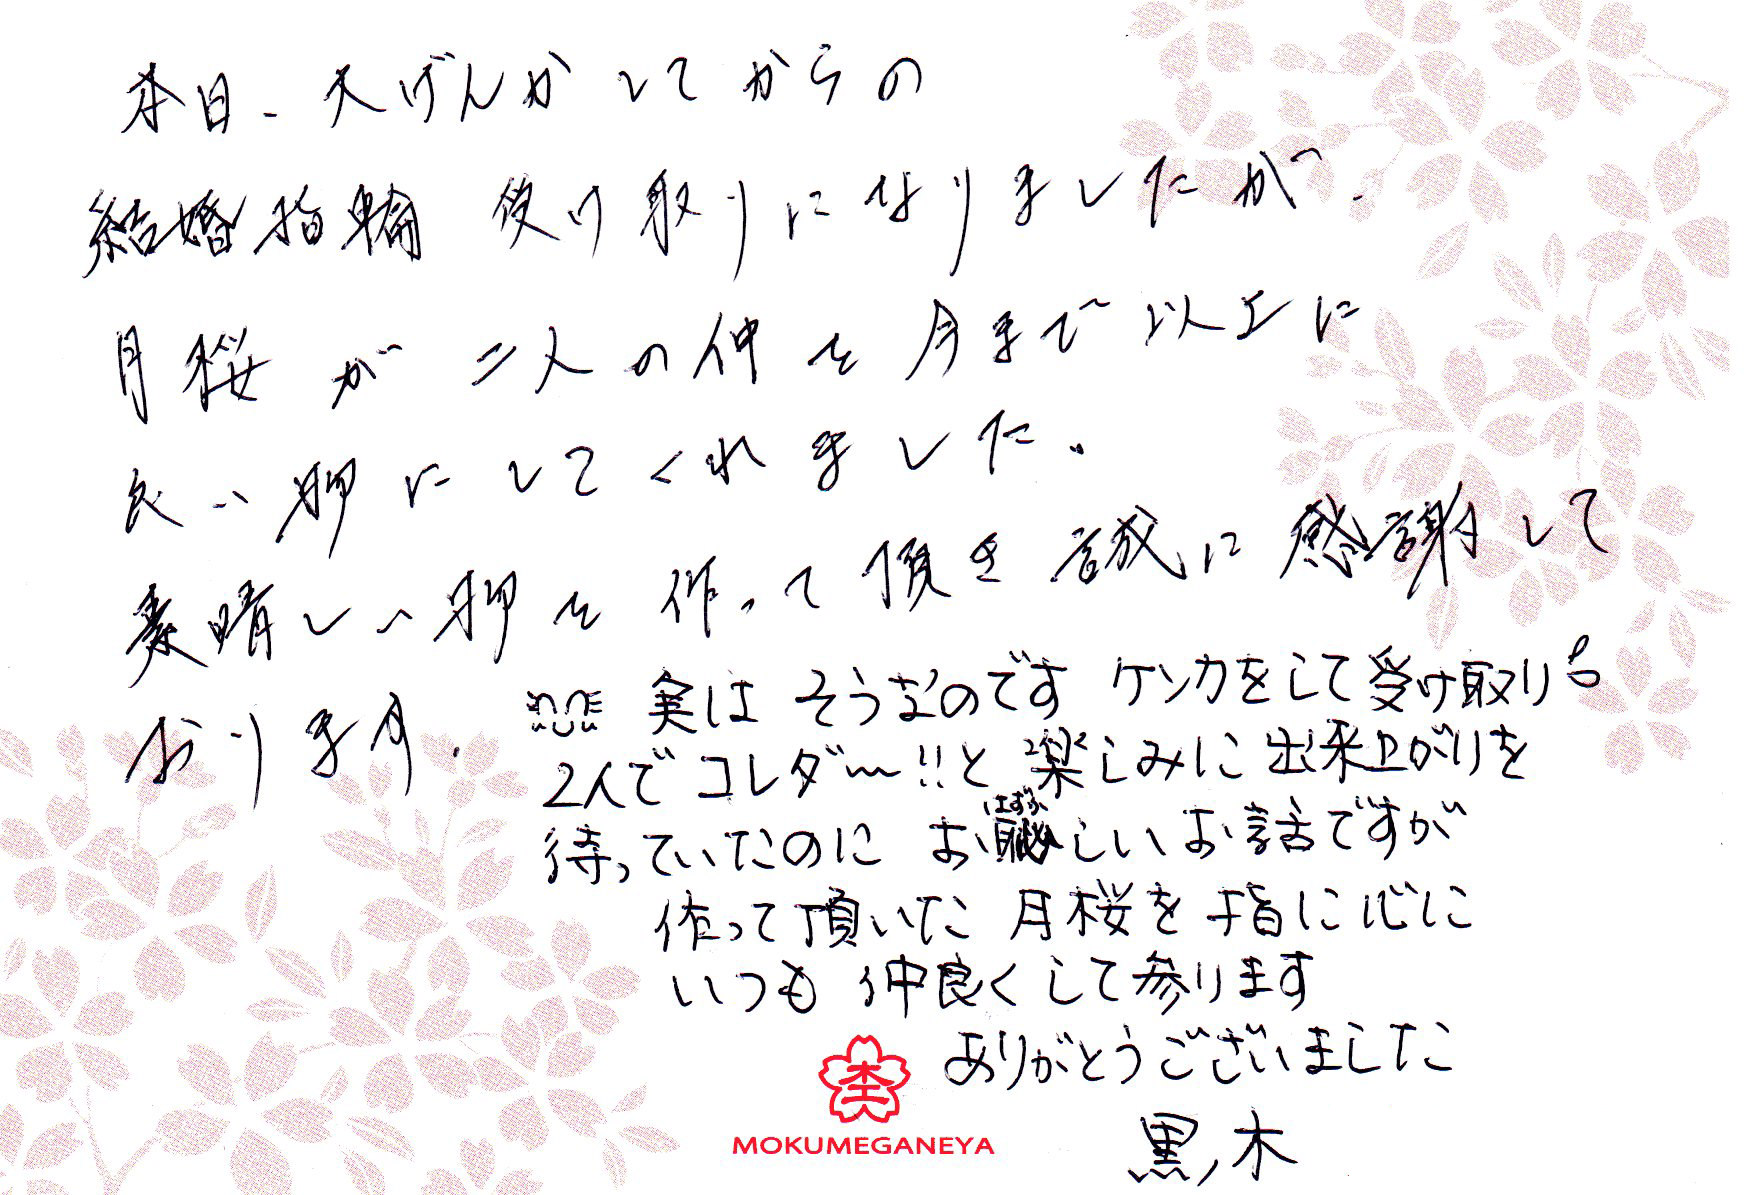 本日、大げんかしてからの
結婚指輪 受け取りになりましたが、
月桜が二人の仲を今まで以上に
良い仲にしてくれました。
素晴しい物を作って頂き誠に感謝して
おります。
実は そうなのです ケンカをして受け取り
2人でコレダ〜!!と 楽しみに出来上がりを
待っていたのに お恥しいお話ですが
はずか
作って頂いた 月桜を 指に心に
いつも 仲良くして参ります
ありがとうございました
黒木
MOKUMEGANEYA